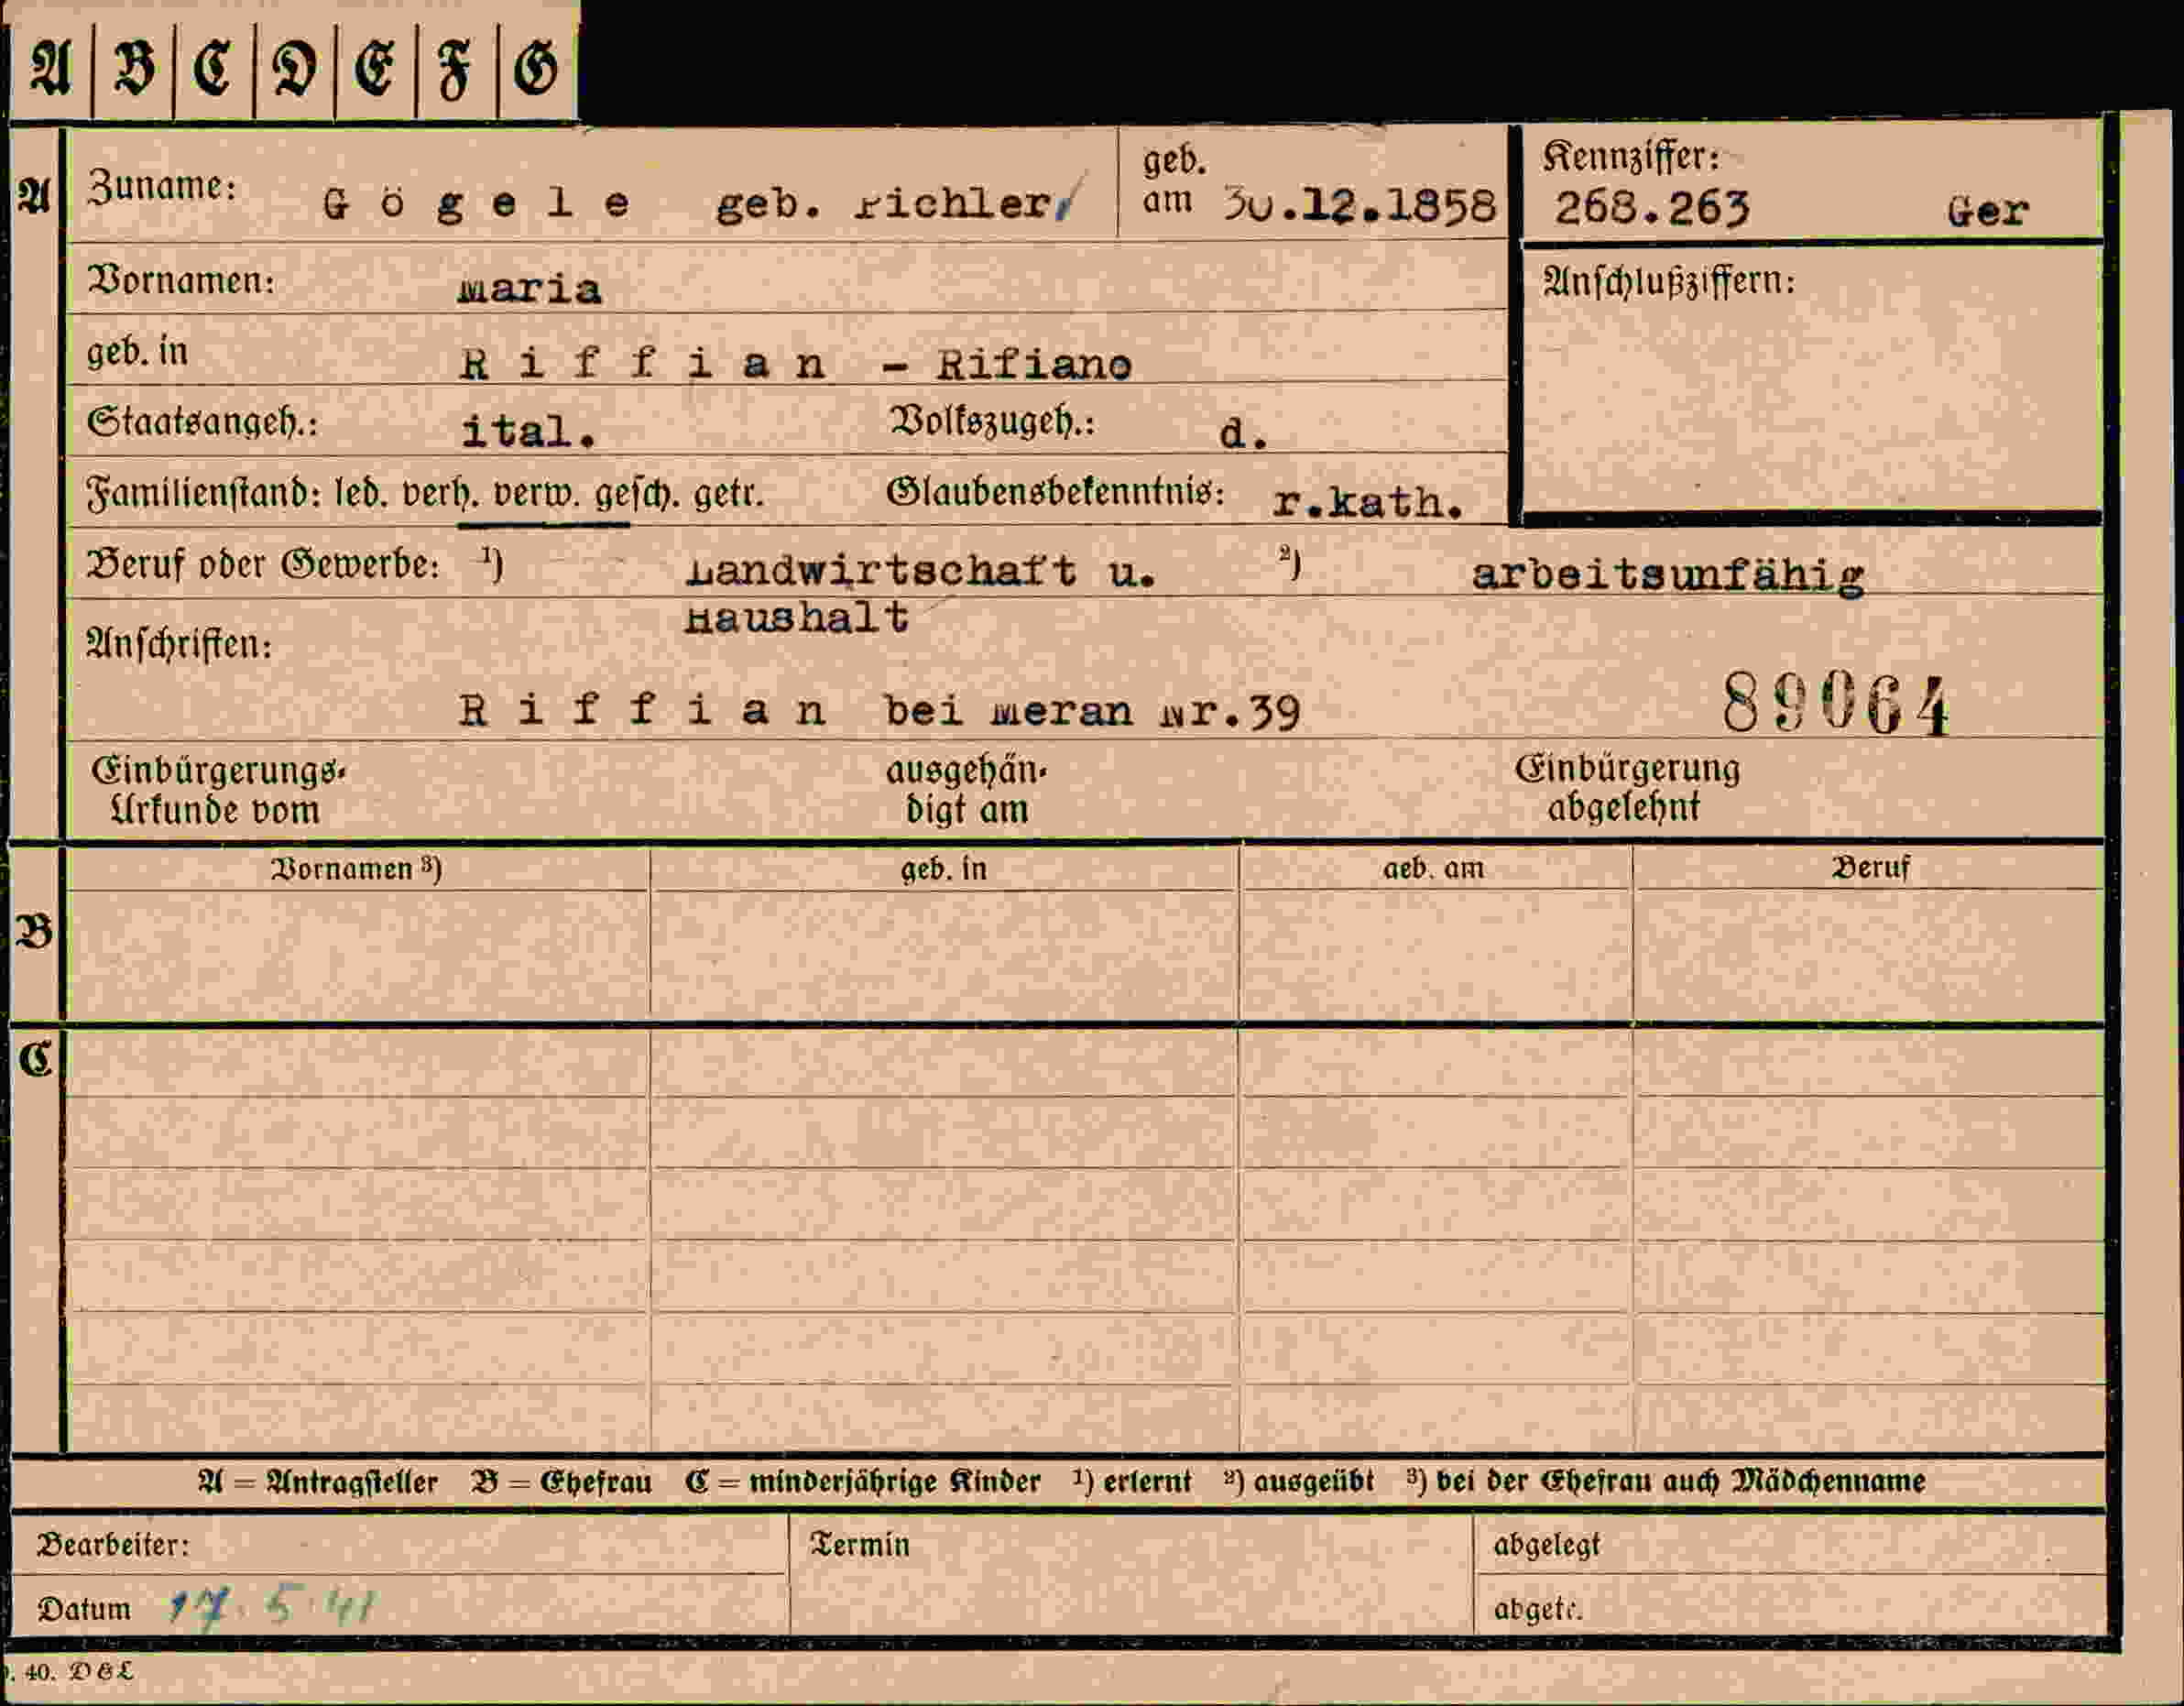 A | B | C | D | E | F | G
A
Zuname: Gögele geb. Pichler
geb. am 30.12.1858
Kennziffer: 268.263 Ger
Vornamen: Maria
Anschlußziffern:
geb. in Riffian - Rifiano
Staatsangeh.: ital. Volkszugeh.: d.
Familienstand: led. verh. verw. gesch. getr. Glaubensbekenntnis: r.kath.
Beruf oder Gewerbe: 1) Landwirtschaft u. 2) arbeitsunfähig
Haushalt
Anschriften:
Riffian bei Meran Nr.39 89064
Einbürgerungs- ausgehän- Einbürgerung
Urkunde vom digt am abgelehnt
Vornamen 3) geb. in geb. am Beruf
B
C
A = Antragsteller B = Ehefrau C = minderjährige Kinder 1) erlernt 2) ausgeübt 3) bei der Ehefrau auch Mädchenname
Bearbeiter: Termin abgelegt
Datum 17.5.41 abgetr.
40. D&L